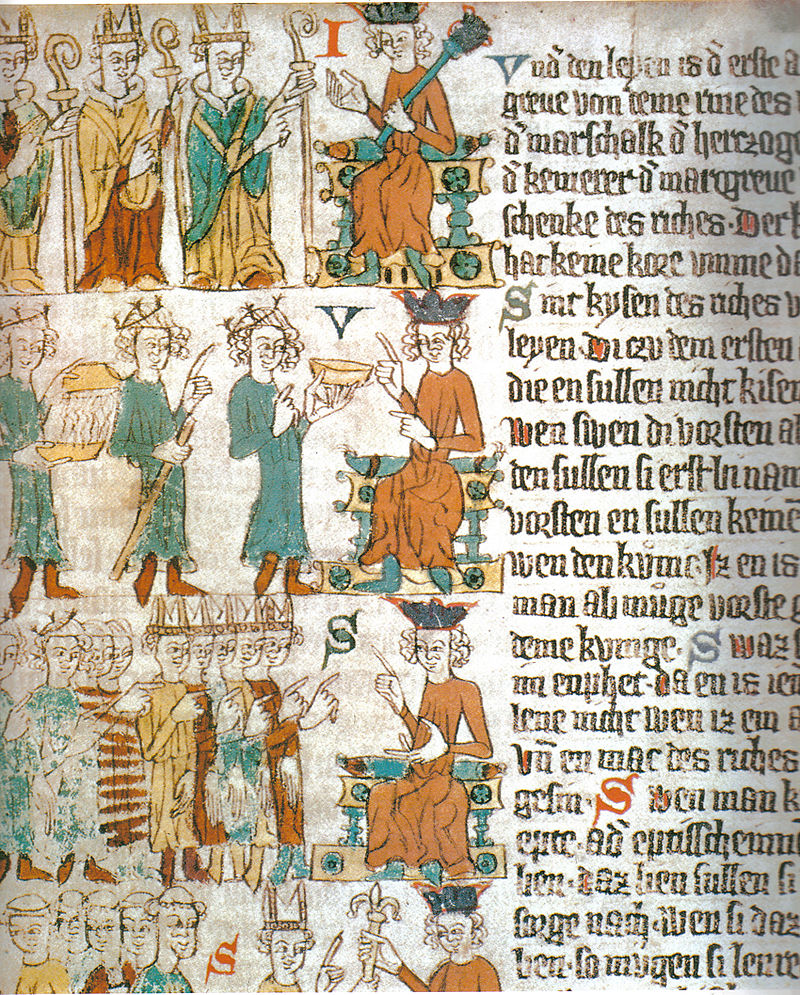 I
V
S
S
Vnd̄ den leyen is d̄ erste a
greue von deme rine des
d̄ marschalk d̄ herczoge
d̄ kemerer d̄ marcgreue
schenke des riches. Der k
har keme kore vmme da
Sint kysen des riches v
leyen. Di czu dem ersten
die en sullen nicht kisen
Wen swen di vorsten al
den sullen si erst. In nam
vorsten en sullen keme
wen den Iz en is
man ab muge vorste g
deme kunige. Swaz
im enphet. da en is
lene nicht wen iz ein a
Vn̄ en mac des riches
gesin. Swen man k
epte. ad̄
hen. daz lien sullen si
sorge nach. wen si daz
ben. so mugen si